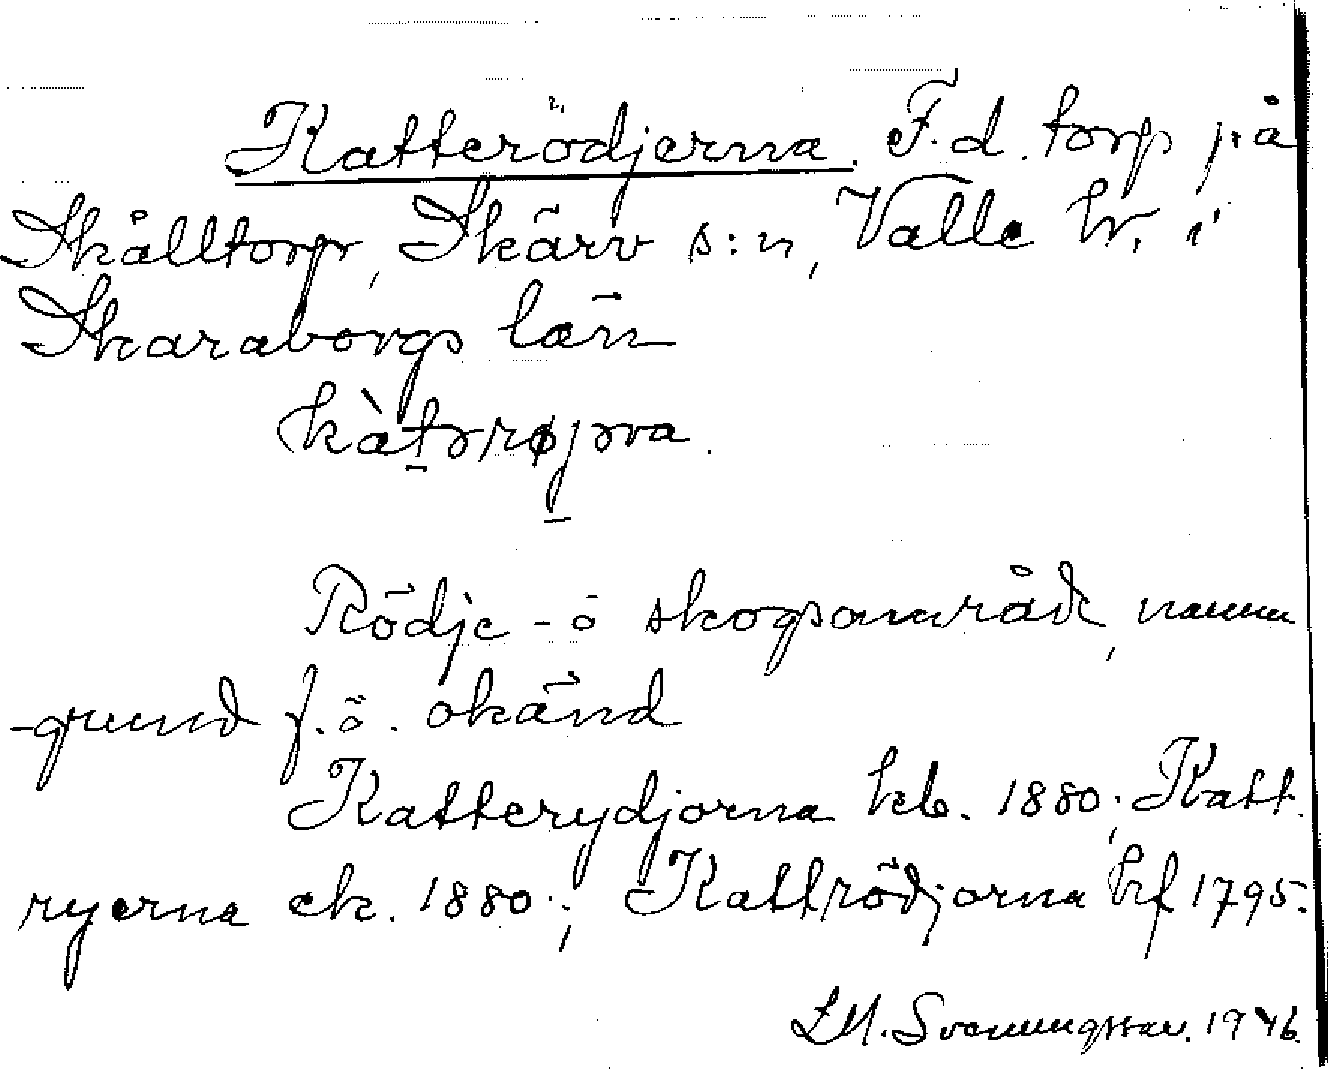 Katterödjerna. F.d. torp på
Skålltorp, Skärv s:n, Valle hr. i
Skaraborgs län
kàtərøjəɳa.
Rödje - ö skogsområde, namn
-grund f.ö. okänd
Katterydjorna hb. 1880; Katt
ryerna ek. 1880.; Kattrödjorna hf 1795.
Svenningsson. 1946.